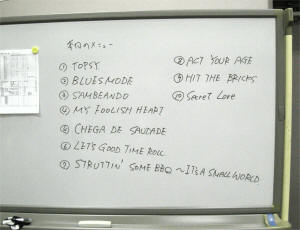 今日のメニュー
① TOPSY
② BLUESMODE
③ SAMBEANDO
④ MY FOOLISH HEART
⑤ CHEGA DE SAUDADE
⑥ LET'S GOOD TIME ROLL
⑦ STRUTTIN' SOME BBQ ~IT'S A SMALL WORLD
⑧ ACT YOUR AGE
⑨ HIT THE BRICKS
⑩ Secret Love